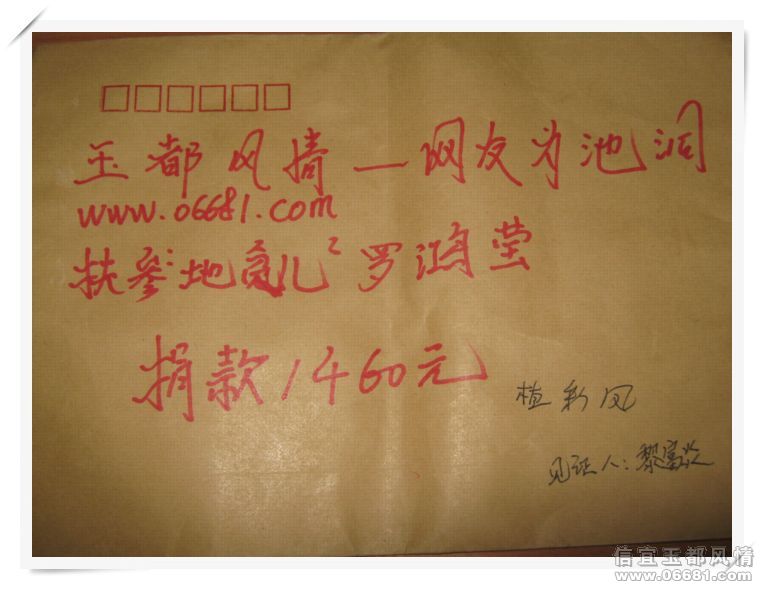 玉都风情—网友为池洞
www.06681.com
扶参地 儿 罗鸿莹
捐款1460元
植彩凤
见证人:黎富
信宜玉都风情
www.06681.com